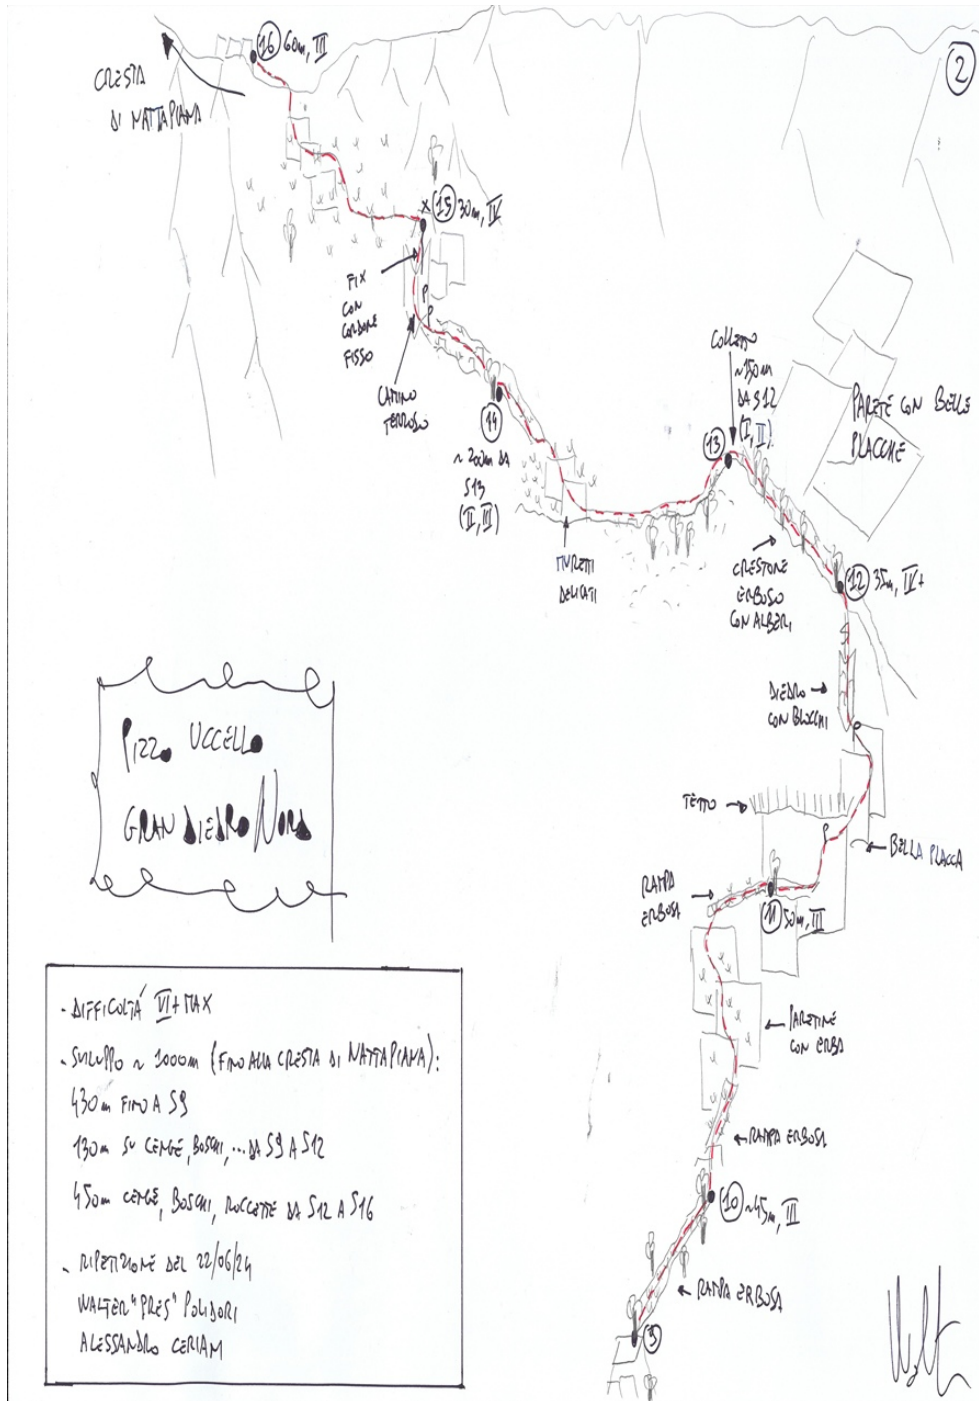 2
16 60m, III
CRESTA
DI NATTAPIANA
X 15 30m, IV
FIX
CON
CORDONE
FISSO
CAMINO
TERROSO
14
~ 200m DA
S13
(II, III)
MURETTI
DELICATI
COLLETTO
~150m
DA S12
(I, II)
13
PARETE CON BELLE
PLACCHE
CRESTONE
ERBOSO
CON ALBERI
12 35m, IV+
DIEDRO
CON BLOCCHI
TETTO
BELLA PLACCA
RAMPA
ERBOSA
11 50m, III
PARETINE
CON ERBA
RAMPA ERBOSA
10 ~45m, III
RAMPA ERBOSA
9
PIZZO UCCELLO
GRAN DIEDRO NORD
- DIFFICOLTÀ VI+ MAX
- SVILUPPO ~ 1000m (FINO ALLA CRESTA DI NATTAPIANA):
430m FINO A S9
130m SU CENGE, BOSCHI, ... DA S9 A S12
450m CENGE, BOSCHI, ROCCETTE DA S12 A S16
- RIPETIZIONE DEL 22/06/24
WALTER "PRES" POLIDORI
ALESSANDRO CERIANI